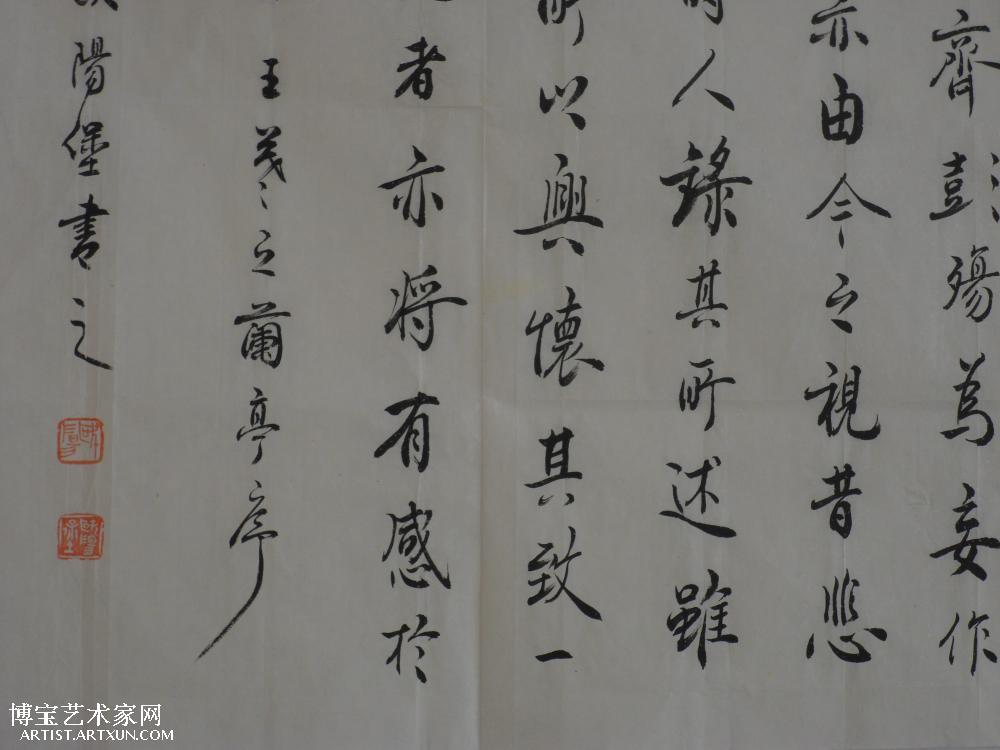 齊彭殤為妄作
亦由今之視昔悲
時人錄其所述雖
所以興懷其致一
者亦將有感於
王羲之之蘭亭序
陽堡書之
博宝艺术家网
ARTIST.ARTXUN.COM